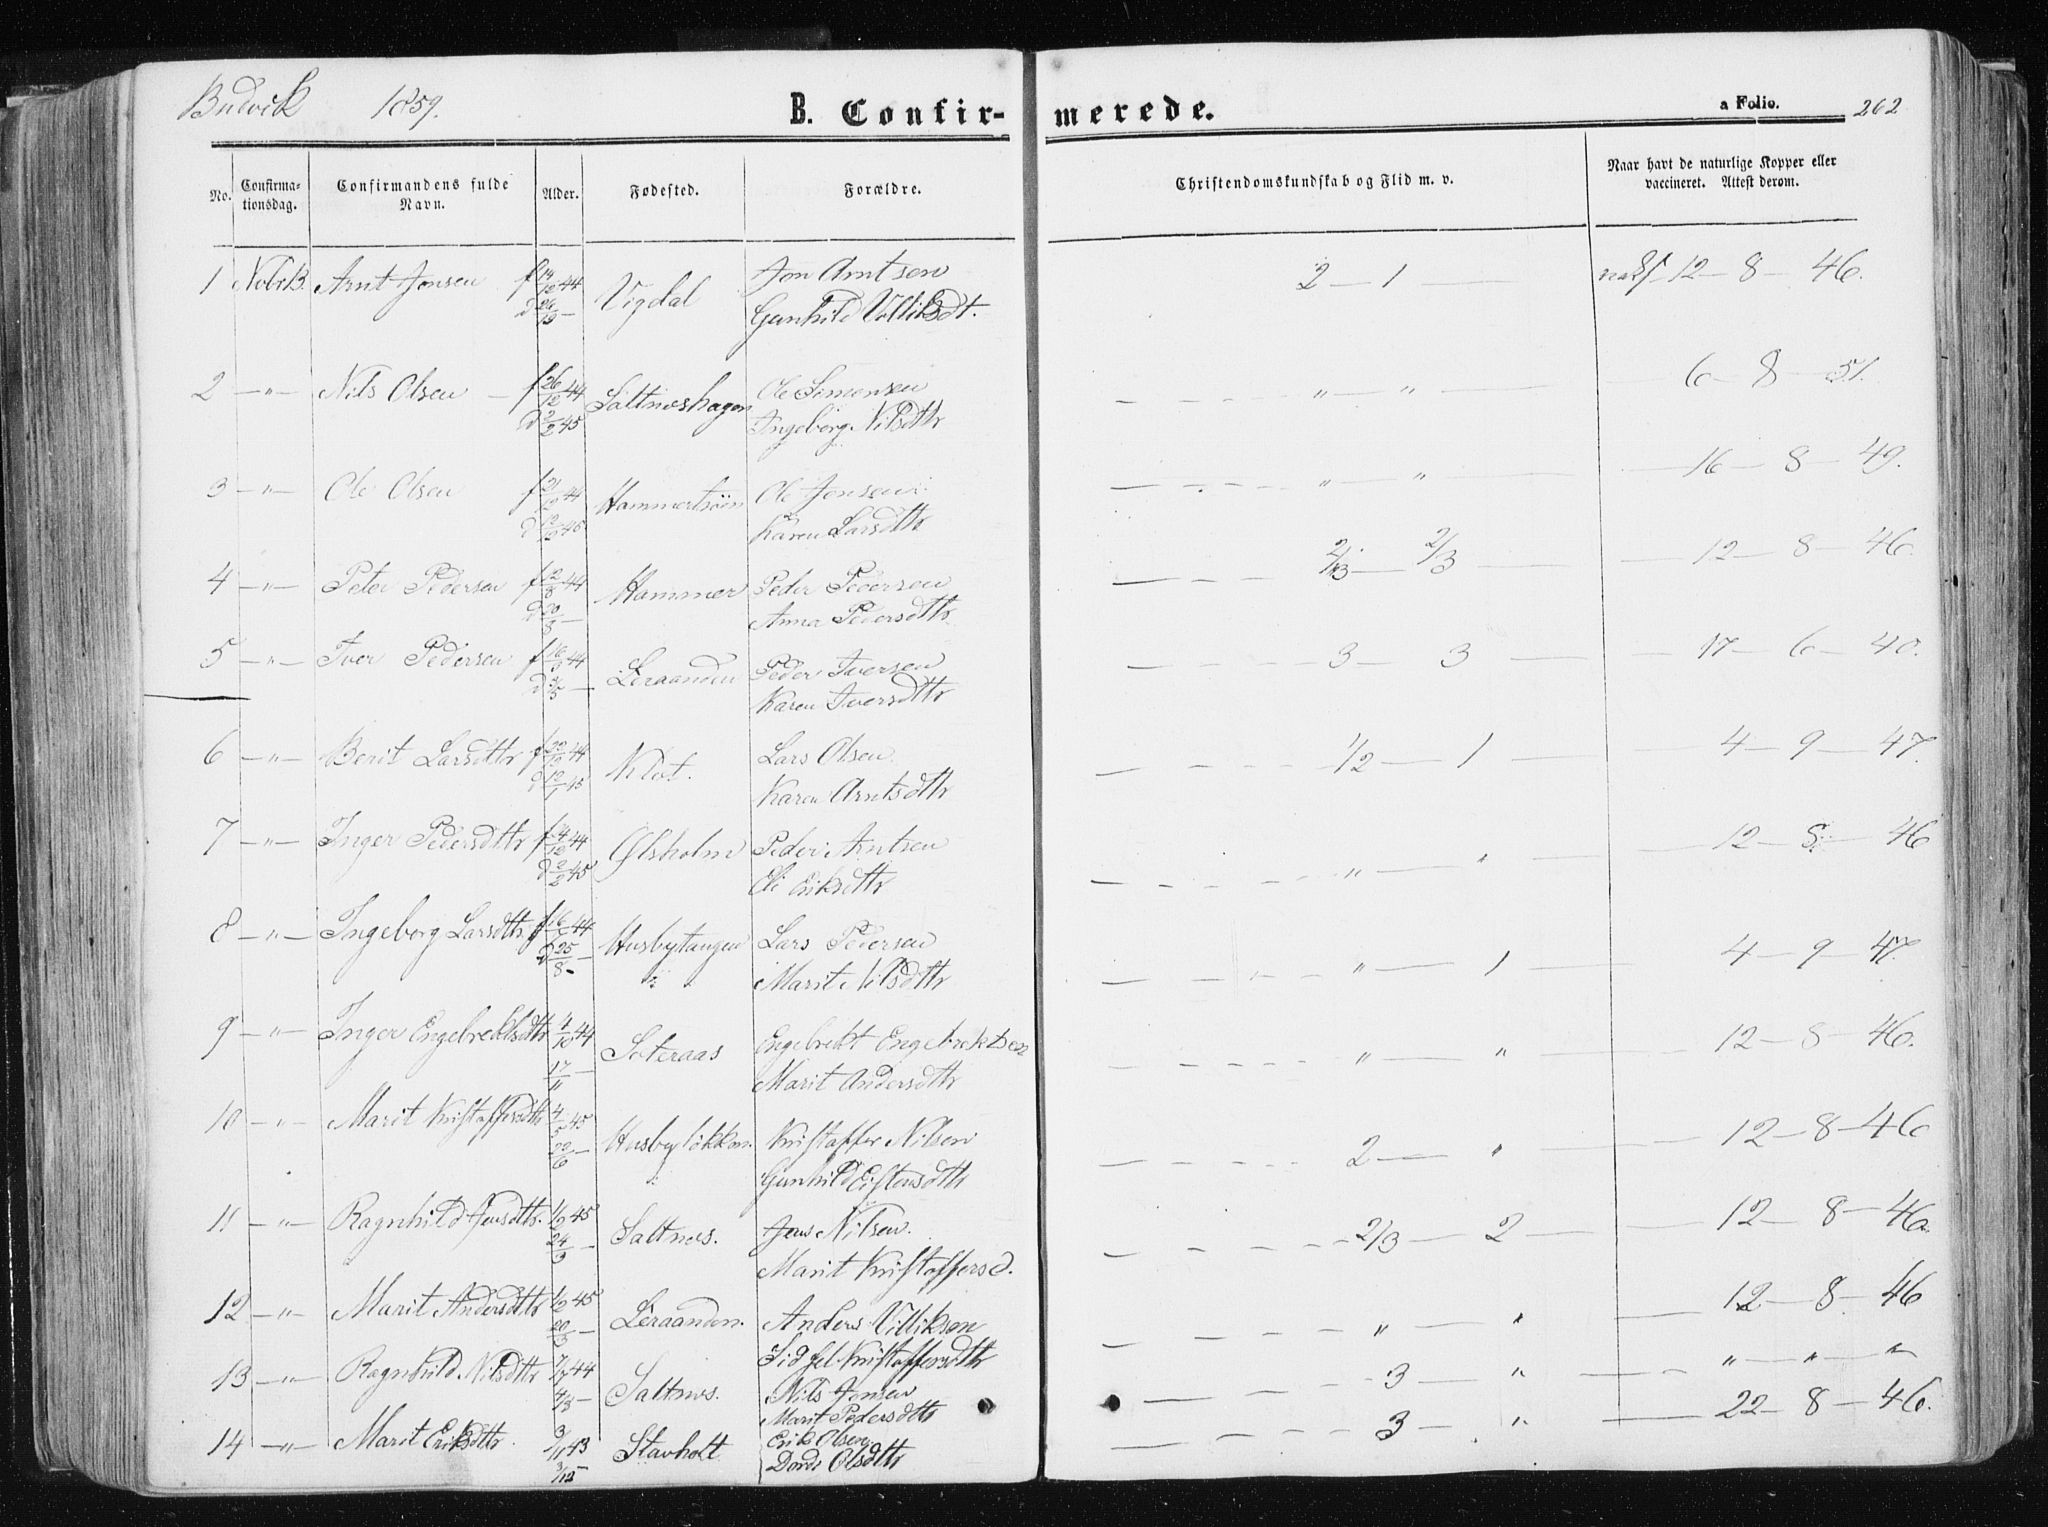 Budvik 1859. B. Confir- merede. a Folio. 262
No. Confirma-tionsdag. Confirmandens fulde Navn. Alder. Fødested. Forældre. Christendomskundskab og Flid m. v. Naar havt de naturlige Kopper eller vaccineret. Attest derom.
1 Arnt Jonsen f 44 Vigdal Jon Arntsen 2 — 1 — 12 — 8 — 46.
d 26 — Gunhild Villiksdt.
2 —"— Nils Olsen — f 26/12 44 Saltneshagen Ole Simonsen " — " — 6 — 8 — 51.
d 2/2 45 Ingeborg Nilsdtr
3 —"— Ole Olsen f 21/12 44 Ole Jensen " — " — 16 — 8 — 49.
d 45 Karen Larsdtr
4 —"— Peter Pedersen f 12/8 44 Hammer Peder Pedersen 2/3 — 2/3 — 12 — 8 — 46.
d 20/8 — Anna Pedersdtr
5 —"— Iver Pedersen f 16 44 Leraanden Peder Iversen 3 — 3 — 17 — 6 — 40.
d — Karen Iversdtr
6 —"— Berit Larsdtr f 22/12 44 Klat. Lars Olsen 1/2 — 1 — 4 — 9 — 47.
d 12/1 45 Karen Arntsdtr
7 —"— Inger Pedersdtr f 14/12 44 Ølsholm Peder Arntsen " — " — 12 — 8 — 46
d 2/2 45 Eli Eriksdtr
8 —"— Ingeborg Larsdtr f 16 44 Husbytangen Lars Pedersen " — 1 — 4 — 9 — 47.
d 25/8 — Marit Nilsdtr
9 —"— Inger Engebrektsdtr 4/10 44 Soteraas Engebrekt Engebrektsen " — " — 12 — 8 — 46.
17/11 — Marit Andersdtr
10 —"— Marit Kristaffersdtr 4/5 45 Husbyløkken. Kristaffer Nilsen 2 — " — 12 — 8 — 46
22/6 — Gunhild Eistensdtr
11 —"— Ragnhild Jensdtr. 1/2 45 Saltnes. Jens Nilsen. 2/3 — 2 — 12 — 8 — 46.
24/3 — Marit Kristaffersd.
12 —"— Marit Andersdtr 1/2 45 Leraanden. Anders Villiksen " — " — 12 — 8 — 46
20 — Kristaffersdtr
13 —"— Ragnhild Nilsdtr 7/7 44 Saltnes. Nils Jonsen 3 — " — " — " — "
4/8 — Marit Pedersdtr
14 —"— Marit Eriksdtr. 3/11 43 Stavholt Erik Olsen 3 — " — 22 — 8 — 46.
3/12 Dordi Olsdtr